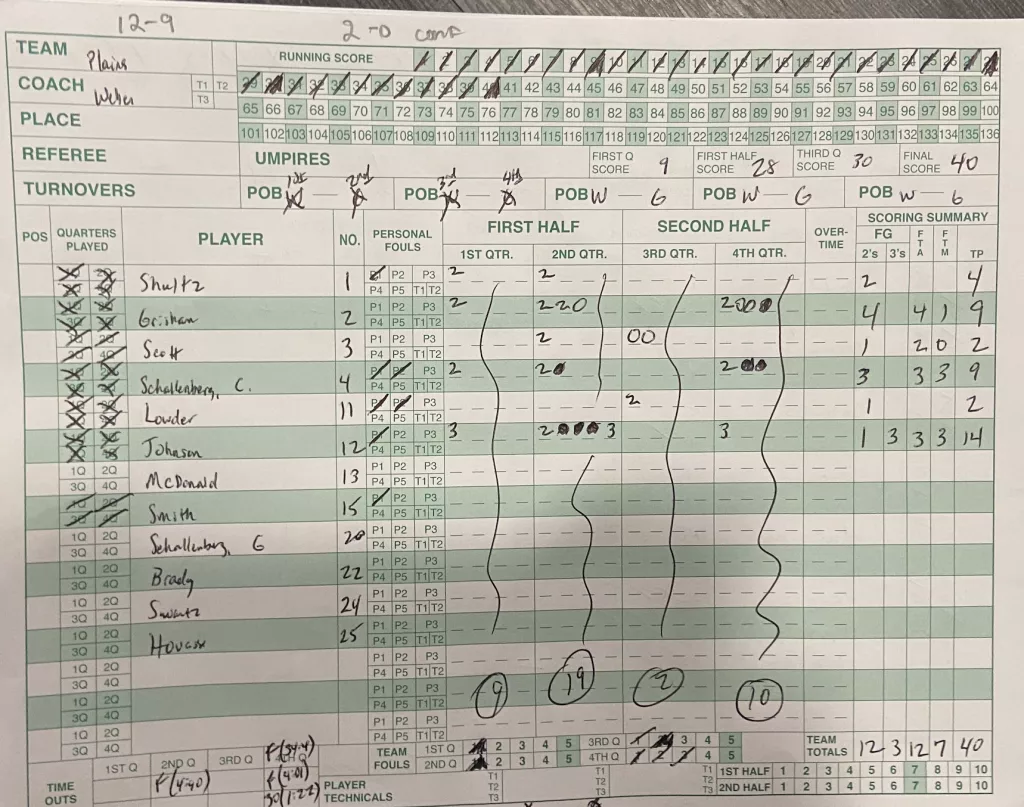 12-9 2-0 conf
TEAM Plains RUNNING SCORE 1 2 3 4 5 6 7 8 9 10 11 12 13 14 15 16 17 18 19 20 21 22 23 24 25 26 27 28
COACH Weber T1 T2 T3 29 30 31 32 33 34 35 36 37 38 39 40 41 42 43 44 45 46 47 48 49 50 51 52 53 54 55 56 57 58 59 60 61 62 63 64
65 66 67 68 69 70 71 72 73 74 75 76 77 78 79 80 81 82 83 84 85 86 87 88 89 90 91 92 93 94 95 96 97 98 99 100
PLACE 101 102 103 104 105 106 107 108 109 110 111 112 113 114 115 116 117 118 119 120 121 122 123 124 125 126 127 128 129 130 131 132 133 134 135 136
REFEREE UMPIRES FIRST Q SCORE 9 FIRST HALF SCORE 28 THIRD Q SCORE 30 FINAL SCORE 40
1st 2nd 3rd 4th
TURNOVERS POB W — G POB W — G POB W — G POB W — G POB W — G
POS QUARTERS PLAYED PLAYER NO. PERSONAL FOULS FIRST HALF SECOND HALF OVER-TIME SCORING SUMMARY
1ST QTR. 2ND QTR. 3RD QTR. 4TH QTR. FG 2's 3's FTA FTM TP
1Q 2Q 3Q 4Q Shultz 1 P1 P2 P3 P4 P5 T1 T2 2 2 2 4
1Q 2Q 3Q 4Q Grisham 2 P1 P2 P3 P4 P5 T1 T2 2 220 2000 4 4 1 9
1Q 2Q 3Q 4Q Scott 3 P1 P2 P3 P4 P5 T1 T2 2 00 1 2 0 2
1Q 2Q 3Q 4Q Schallenberg, C. 4 P1 P2 P3 P4 P5 T1 T2 2 20 200 3 3 3 9
1Q 2Q 3Q 4Q Lowder 11 P1 P2 P3 P4 P5 T1 T2 2 1 2
1Q 2Q 3Q 4Q Johnson 12 P1 P2 P3 P4 P5 T1 T2 3 20003 3 1 3 3 3 14
1Q 2Q 3Q 4Q McDonald 13 P1 P2 P3 P4 P5 T1 T2
1Q 2Q 3Q 4Q Smith 15 P1 P2 P3 P4 P5 T1 T2
1Q 2Q 3Q 4Q Schallenberg, G 20 P1 P2 P3 P4 P5 T1 T2
1Q 2Q 3Q 4Q Brady 22 P1 P2 P3 P4 P5 T1 T2
1Q 2Q 3Q 4Q Swartz 24 P1 P2 P3 P4 P5 T1 T2
1Q 2Q 3Q 4Q 25 P1 P2 P3 P4 P5 T1 T2
1Q 2Q 3Q 4Q P1 P2 P3 P4 P5 T1 T2
1Q 2Q 3Q 4Q P1 P2 P3 P4 P5 T1 T2 9 19 2 10
1Q 2Q 3Q 4Q P1 P2 P3 P4 P5 T1 T2
TEAM FOULS 1ST Q 1 2 3 4 5 3RD Q 1 2 3 4 5 TEAM TOTALS 12 3 12 7 40
2ND Q 1 2 3 4 5 4TH Q 1 2 3 4 5
TIME OUTS 1ST Q 2ND Q F(4:40) 3RD Q 4TH Q F(54.4) F(4:01) 30(1:22)
PLAYER TECHNICALS T1 T2 T3 T1 T2 T3 T1 T2 T3 1ST HALF 1 2 3 4 5 6 7 8 9 10
2ND HALF 1 2 3 4 5 6 7 8 9 10